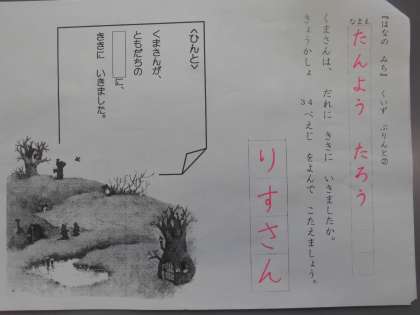 『はなの みち』 くいず ぷりんとの
なまえ
たんよう たろう
くまさんは、 だれに ききに いきましたか。
きょうかしょ 34 ぺえじ をよんで こたえましょう。
りすさん
<ひんと>
くまさんが、
ともだちの
に、
ききに いきました。